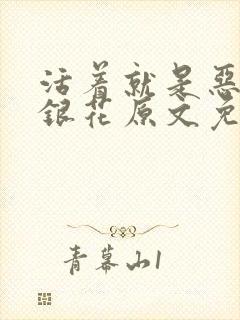 活着就是恶
銀花原文免
青幕山1